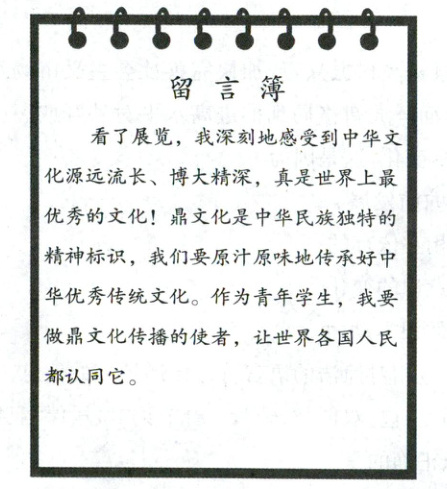 留言簿
看了展览，我深刻地感受到中华文
化源远流长、博大精深，真是世界上最
优秀的文化！鼎文化是中华民族独特的
精神标识，我们要原汁原味地传承好中
华优秀传统文化。作为青年学生，我要
做鼎文化传播的使者，让世界各国人民
都认同它。